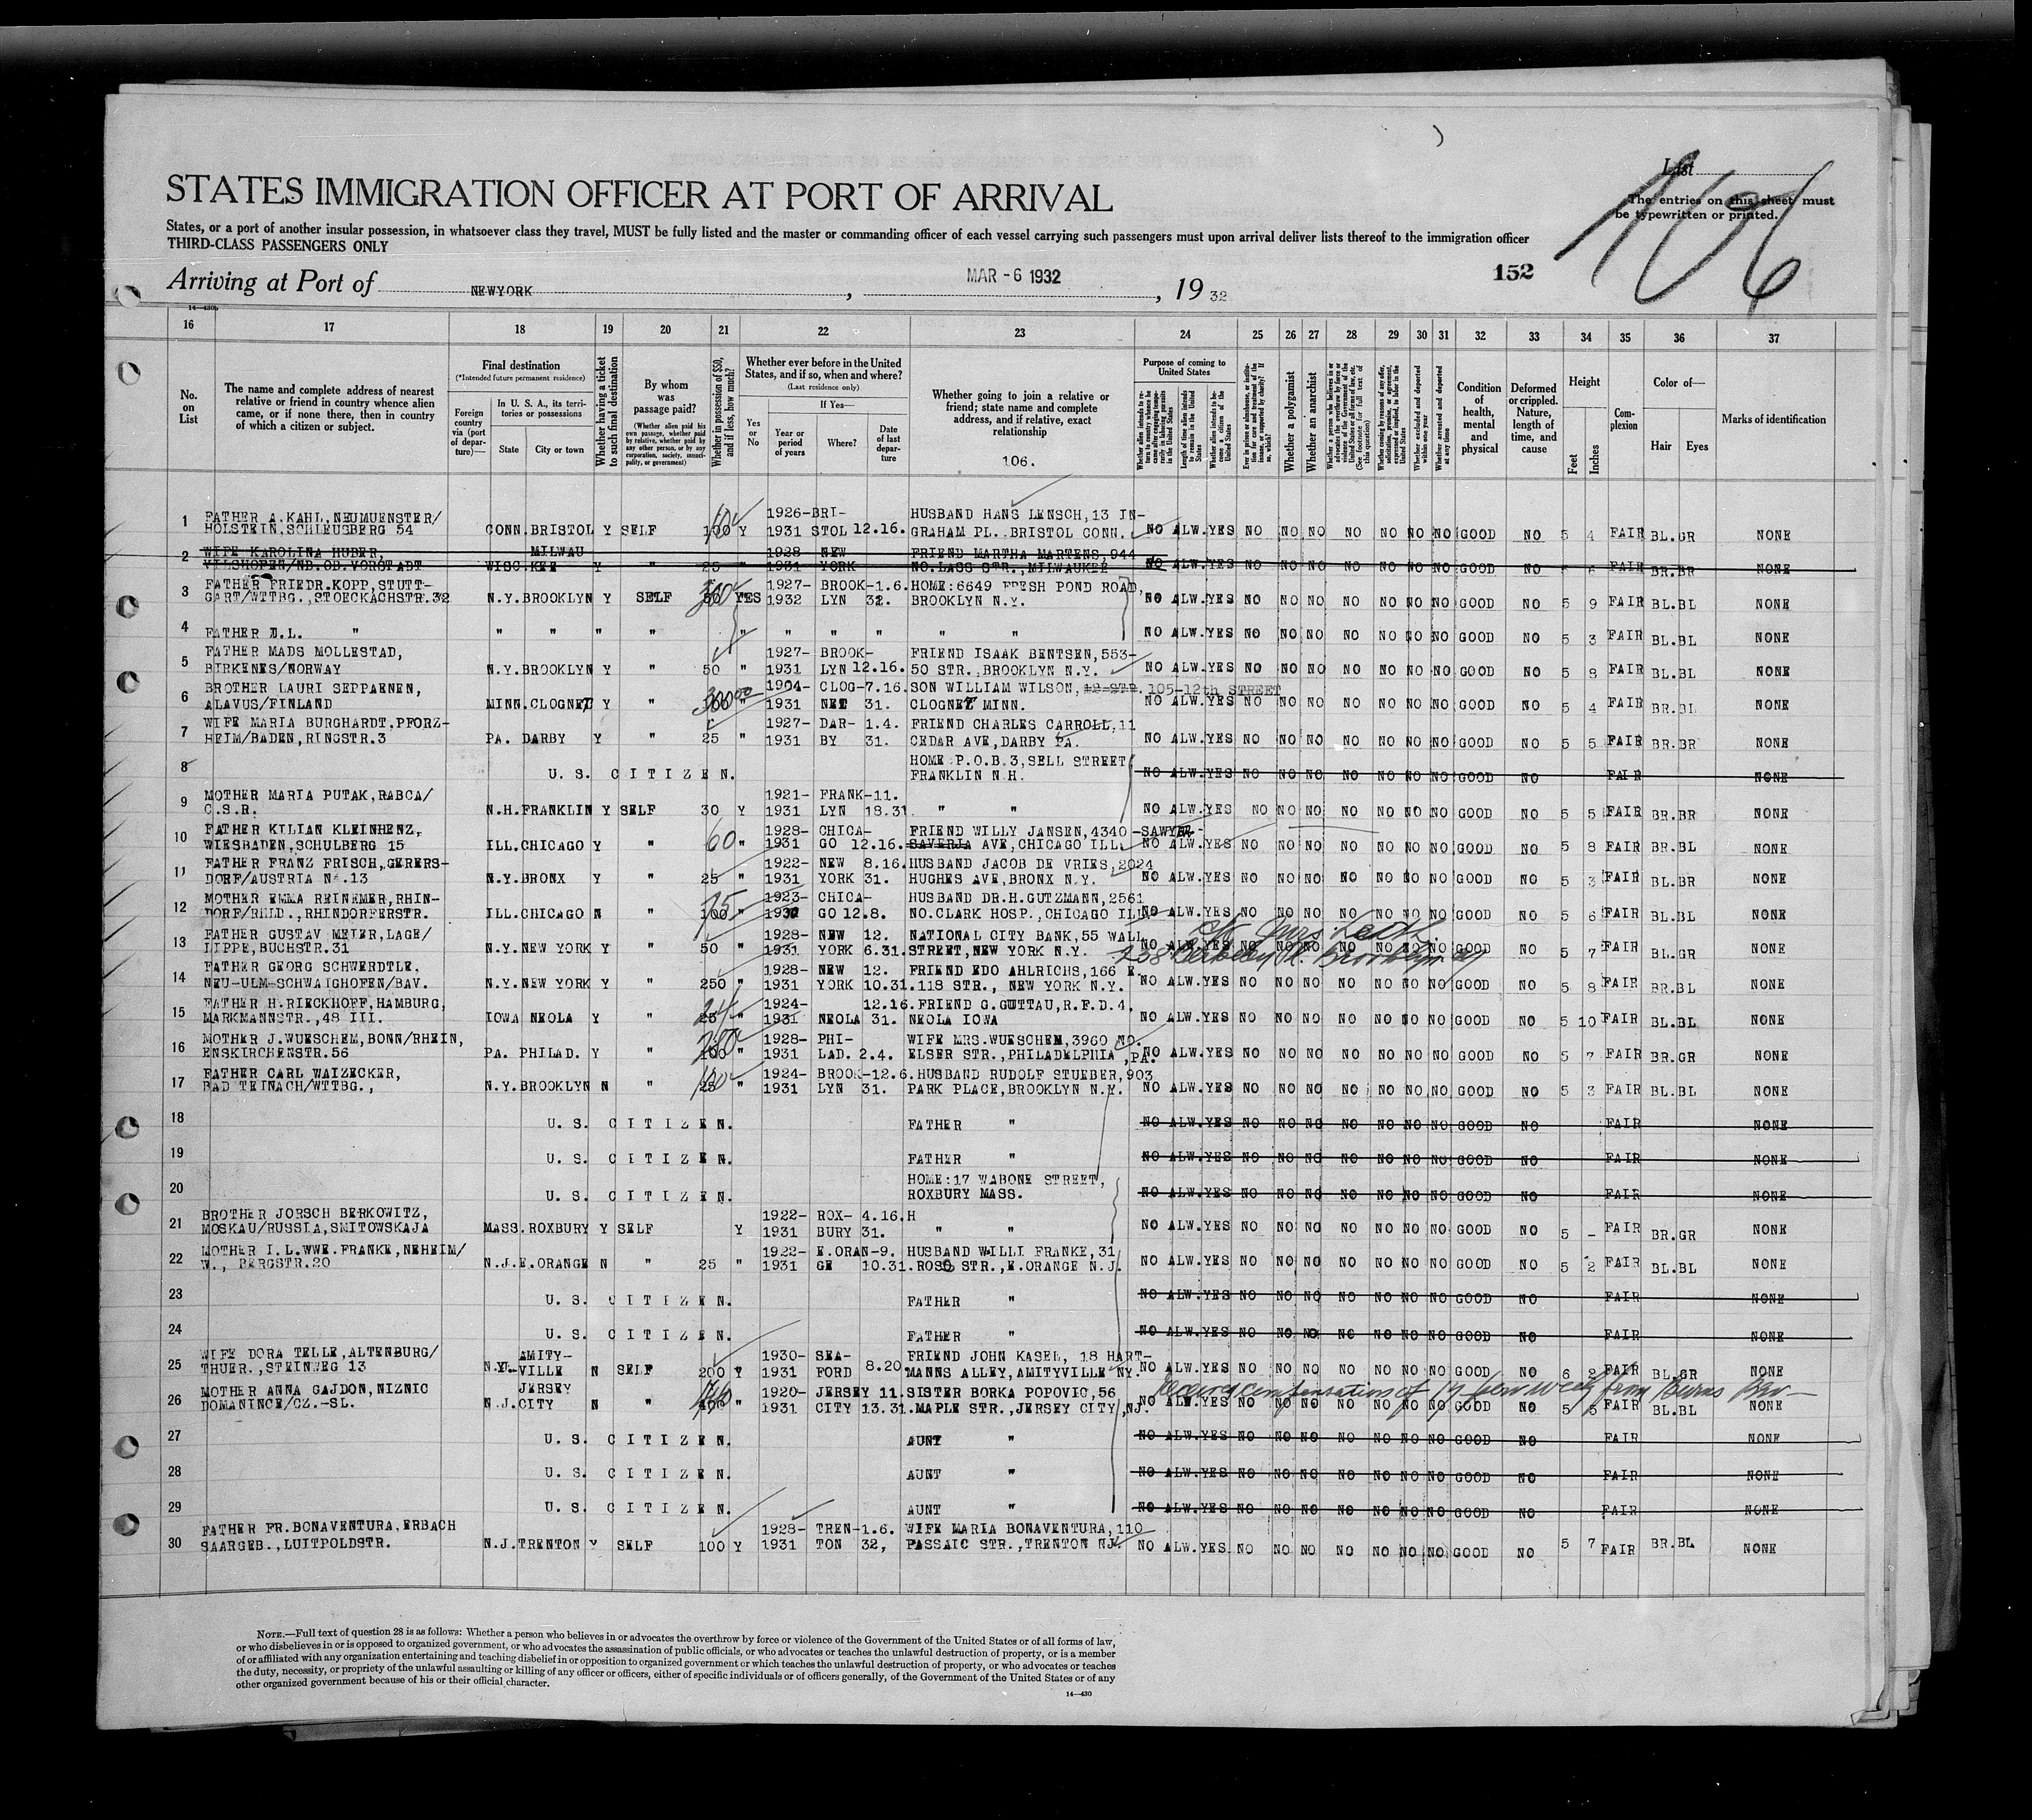 List
STATES IMMIGRATION OFFICER AT PORT OF ARRIVAL
The entries on this sheet must
be typewritten or printed.
States, or a port of another insular possession, in whatsoever class they travel, MUST be fully listed and the master or commanding officer of each vessel carrying such passengers must upon arrival deliver lists thereof to the immigration officer
THIRD-CLASS PASSENGERS ONLY
152
Arriving at Port of NEWYORK, MAR -6 1932, 19 32
16 17 18 19 20 21 22 23 24 25 26 27 28 29 30 31 32 33 34 35 36 37
No. on List
The name and complete address of nearest relative or friend in country whence alien came, or if none there, then in country of which a citizen or subject.
Final destination
(*Intended future permanent residence)
Foreign country via (port of departure)—
In U. S. A., its territories or possessions
State City or town
Whether having a ticket to such final destination
By whom was passage paid?
(Whether alien paid his own passage, whether paid by relative, whether paid by any other person, or by any corporation, society, municipality, or government)
Whether in possession of $50, and if less, how much?
Whether ever before in the United States, and if so, when and where?
(Last residence only)
Yes or No
If Yes—
Year or period of years
Where?
Date of last departure
Whether going to join a relative or friend; state name and complete address, and if relative, exact relationship
106.
Purpose of coming to United States
Whether a polygamist
Whether an anarchist
Condition of health, mental and physical
Deformed or crippled. Nature, length of time, and cause
Height
Feet Inches
Complexion
Color of—
Hair Eyes
Marks of identification
1 FATHER A.KAHL,NEUMUENSTER/ 1926-BRI- HUSBAND HANS LENSCH,13 IN-
HOLSTEIN,SCHLEUSBERG 54 CONN.BRISTOL Y SELF 100 Y 1931 STOL 12.16. GRAHAM PL. BRISTOL CONN. NO ALW.YES NO NO NO NO NO NO NO GOOD NO 5 4 FAIR BL.GR NONE
2 WIFE KAROLINA HUBER, MILWAU 1928 NEW FRIEND MARTHA MARTENS,944
VILSHOFEN/NB.OB.VORSTADT WISC.KEE Y " 25 " 1931 YORK NO.LASS STR.,MILWAUKEE NO ALW.YES NO NO NO NO NO NO NO GOOD NO 5 6 FAIR BR.BR NONE
3 FATHER FRIEDR.KOPP,STUTT- 1927- BROOK-1.6. HOME:6649 FRESH POND ROAD,
GART/WTTBG.,STOECKACHSTR.32 N.Y.BROOKLYN Y SELF 50 YES 1932 LYN 32. BROOKLYN N.Y. NO ALW.YES NO NO NO NO NO NO NO GOOD NO 5 9 FAIR BL.BL NONE
4 FATHER D.L. " " " " " " " " " " " NO ALW.YES NO NO NO NO NO NO NO GOOD NO 5 3 FAIR BL.BL NONE
5 FATHER MADS MOLLESTAD, 1927- BROOK- FRIEND ISAAK BENTSEN,553-
BIRKENES/NORWAY N.Y.BROOKLYN Y " 50 " 1931 LYN 12.16. 50 STR.,BROOKLYN N.Y. NO ALW.YES NO NO NO NO NO NO NO GOOD NO 5 8 FAIR BL.BL NONE
6 BROTHER LAURI SEPPAENEN, 1904- CLOG-7.16. SON WILLIAM WILSON, 12 STR. 105-12th STREET
ALAVUS/FINLAND MINN.CLOGNET Y 300 " 1931 NET 31. CLOGNET MINN. NO ALW.YES NO NO NO NO NO NO NO GOOD NO 5 4 FAIR BR.BL NONE
7 WIFE MARIA BURGHARDT,PFORZ- 1927- DAR- 1.4. FRIEND CHARLES CARROLL,11
HEIM/BADEN,RINGSTR.3 PA. DARBY Y " 25 " 1931 BY 31. CEDAR AVE,DARBY PA. NO ALW.YES NO NO NO NO NO NO NO GOOD NO 5 5 FAIR BR.BR NONE
8 HOME P.O.B.3,SELL STREET
U. S. CITIZEN. FRANKLIN N.H. NO ALW.YES NO NO NO NO NO NO NO GOOD NO FAIR NONE
9 MOTHER MARIA PUTAK,RABCA/ 1921- FRANK-11.
C.S.R. N.H.FRANKLIN Y SELF 30 Y 1931 LYN 18.31 " " NO ALW.YES NO NO NO NO NO NO NO GOOD NO 5 5 FAIR BR.BR NONE
10 FATHER KILIAN KLEINHENZ, 1928- CHICA- FRIEND WILLY JANSEN,4340 -SAWYER-
WIESBADEN,SCHULBERG 15 ILL.CHICAGO Y " 60 " 1931 GO 12.16. SAVERIA AVE,CHICAGO ILL. NO ALW.YES NO NO NO NO NO NO NO GOOD NO 5 8 FAIR BR.BL NONE
11 FATHER FRANZ FRISCH,GERERS- 1922- NEW 8.16. HUSBAND JACOB DE VRIES,2024
DORF/AUSTRIA No.13 N.Y.BRONX Y " 25 " 1931 YORK 31. HUGHES AVE,BRONX N.Y. NO ALW.YES NO NO NO NO NO NO NO GOOD NO 5 3 FAIR BL.BR NONE
12 MOTHER EMMA REINEMER,RHIN- 75 1923- CHICA- HUSBAND DR.H.GUTZMANN,2561
DORF/RHLD.,RHINDORFERSTR. ILL.CHICAGO N " 100 " GO 12.8. NO.CLARK HOSP.,CHICAGO ILL. NO ALW.YES NO NO NO NO NO NO NO GOOD NO 5 6 FAIR BL.BL NONE
13 FATHER GUSTAV MEIER,LAGE/ 1928- NEW 12. NATIONAL CITY BANK,55 WALL
LIPPE,BUCHSTR.31 N.Y.NEW YORK Y " 50 " 1931 YORK 6.31. STREET,NEW YORK N.Y. NO ALW.YES NO NO NO NO NO NO NO GOOD NO 5 7 FAIR BL.GR NONE
14 FATHER GEORG SCHWERDTLE, 1928- NEW 12. FRIEND EDO AHLRICHS,166 E.
NEU-ULM-SCHWAIGHOFEN/BAV. N.Y.NEW YORK Y " 250 " 1931 YORK 10.31. 118 STR., NEW YORK N.Y. NO ALW.YES NO NO NO NO NO NO NO GOOD NO 5 8 FAIR BR.BL NONE
15 FATHER H.RIECKHOFF,HAMBURG, 1924- 12.16. FRIEND G.GUTTAU,R.F.D.4,
MARKMANNSTR.,48 III. IOWA NEOLA Y " 25 " 1931 NEOLA 31. NEOLA IOWA NO ALW.YES NO NO NO NO NO NO NO GOOD NO 5 10 FAIR BL.BL NONE
16 MOTHER J.WUESCHEM,BONN/RHEIN, 1928- PHI- WIFE MRS.WUESCHEM,3960 NO.
ENSKIRCHENSTR.56 PA. PHILAD. Y " 100 " 1931 LAD. 2.4. ELSER STR.,PHILADELPHIA ,PA. NO ALW.YES NO NO NO NO NO NO NO GOOD NO 5 7 FAIR BR.GR NONE
17 FATHER CARL WAIZECKER, 1924- BROOK-12.6. HUSBAND RUDOLF STUEBER,903
BAD TEINACH/WTTBG., N.Y.BROOKLYN N " 25 " 1931 LYN 31. PARK PLACE,BROOKLYN N.Y. NO ALW.YES NO NO NO NO NO NO NO GOOD NO 5 3 FAIR BL.BL NONE
18 U. S. CITIZEN. FATHER " NO ALW.YES NO NO NO NO NO NO NO GOOD NO FAIR NONE
19 U. S. CITIZEN. FATHER " NO ALW.YES NO NO NO NO NO NO NO GOOD NO FAIR NONE
20 HOME:17 WABONE STREET,
U. S. CITIZEN. ROXBURY MASS. NO ALW.YES NO NO NO NO NO NO NO GOOD NO FAIR NONE
21 BROTHER JORSCH BERKOWITZ, 1922- ROX- 4.16.H
MOSKAU/RUSSIA,SMITOWSKAJA MASS.ROXBURY Y SELF Y 1931 BURY 31. " " NO ALW.YES NO NO NO NO NO NO NO GOOD NO 5 - FAIR BR.GR NONE
22 MOTHER I.L.WWE.FRANKE,NEHEIM/ 1922- E.ORAN-9. HUSBAND WILLI FRANKE,31
W., BERGSTR.20 N.J.E.ORANGE N " 25 " 1931 GE 10.31. ROSS STR.,E.ORANGE N.J. NO ALW.YES NO NO NO NO NO NO NO GOOD NO 5 2 FAIR BL.BL NONE
23 U. S. CITIZEN. FATHER " NO ALW.YES NO NO NO NO NO NO NO GOOD NO FAIR NONE
24 U. S. CITIZEN. FATHER " NO ALW.YES NO NO NO NO NO NO NO GOOD NO FAIR NONE
25 WIFE DORA TELLE,ALTENBURG/ AMITY- 1930- SEA- FRIEND JOHN KASEL, 18 HART-
THUER.,STEINWEG 13 N.Y. VILLE N SELF 200 Y 1931 FORD 8.20. MANNS ALLEY,AMITYVILLE NY. NO ALW.YES NO NO NO NO NO NO NO GOOD NO 6 2 FAIR BL.GR NONE
26 MOTHER ANNA GAJDON,NIZNIC JERSEY 1920- JERSEY 11. SISTER BORKA POPOVIC,56
DOMANINCE/CZ.-SL. N.J.CITY N " " 1931 CITY 13.31. MAPLE STR.,JERSEY CITY ,NJ. NO ALW.YES NO NO NO NO NO NO NO GOOD NO 5 5 FAIR BL.BL NONE
27 U. S. CITIZEN. AUNT " NO ALW.YES NO NO NO NO NO NO NO GOOD NO FAIR NONE
28 U. S. CITIZEN. AUNT " NO ALW.YES NO NO NO NO NO NO NO GOOD NO FAIR NONE
29 U. S. CITIZEN. AUNT " NO ALW.YES NO NO NO NO NO NO NO GOOD NO FAIR NONE
30 FATHER FR.BONAVENTURA,ERBACH 1928- TREN-1.6. WIFE MARIA BONAVENTURA,110
SAARGEB.,LUITPOLDSTR. N.J.TRENTON Y SELF 100 Y 1931 TON 32, PASSAIC STR.,TRENTON NJ. NO ALW.YES NO NO NO NO NO NO NO GOOD NO 5 7 FAIR BR.BL NONE
NOTE.—Full text of question 28 is as follows: Whether a person who believes in or advocates the overthrow by force or violence of the Government of the United States or of all forms of law,
or who disbelieves in or is opposed to organized government, or who advocates the assassination of public officials, or who advocates or teaches the unlawful destruction of property, or is a member
of or affiliated with any organization entertaining and teaching disbelief in or opposition to organized government or which teaches the unlawful destruction of property, or who advocates or teaches
the duty, necessity, or propriety of the unlawful assaulting or killing of any officer or officers, either of specific individuals or of officers generally, of the Government of the United States or of any
other organized government because of his or their official character.
14—430